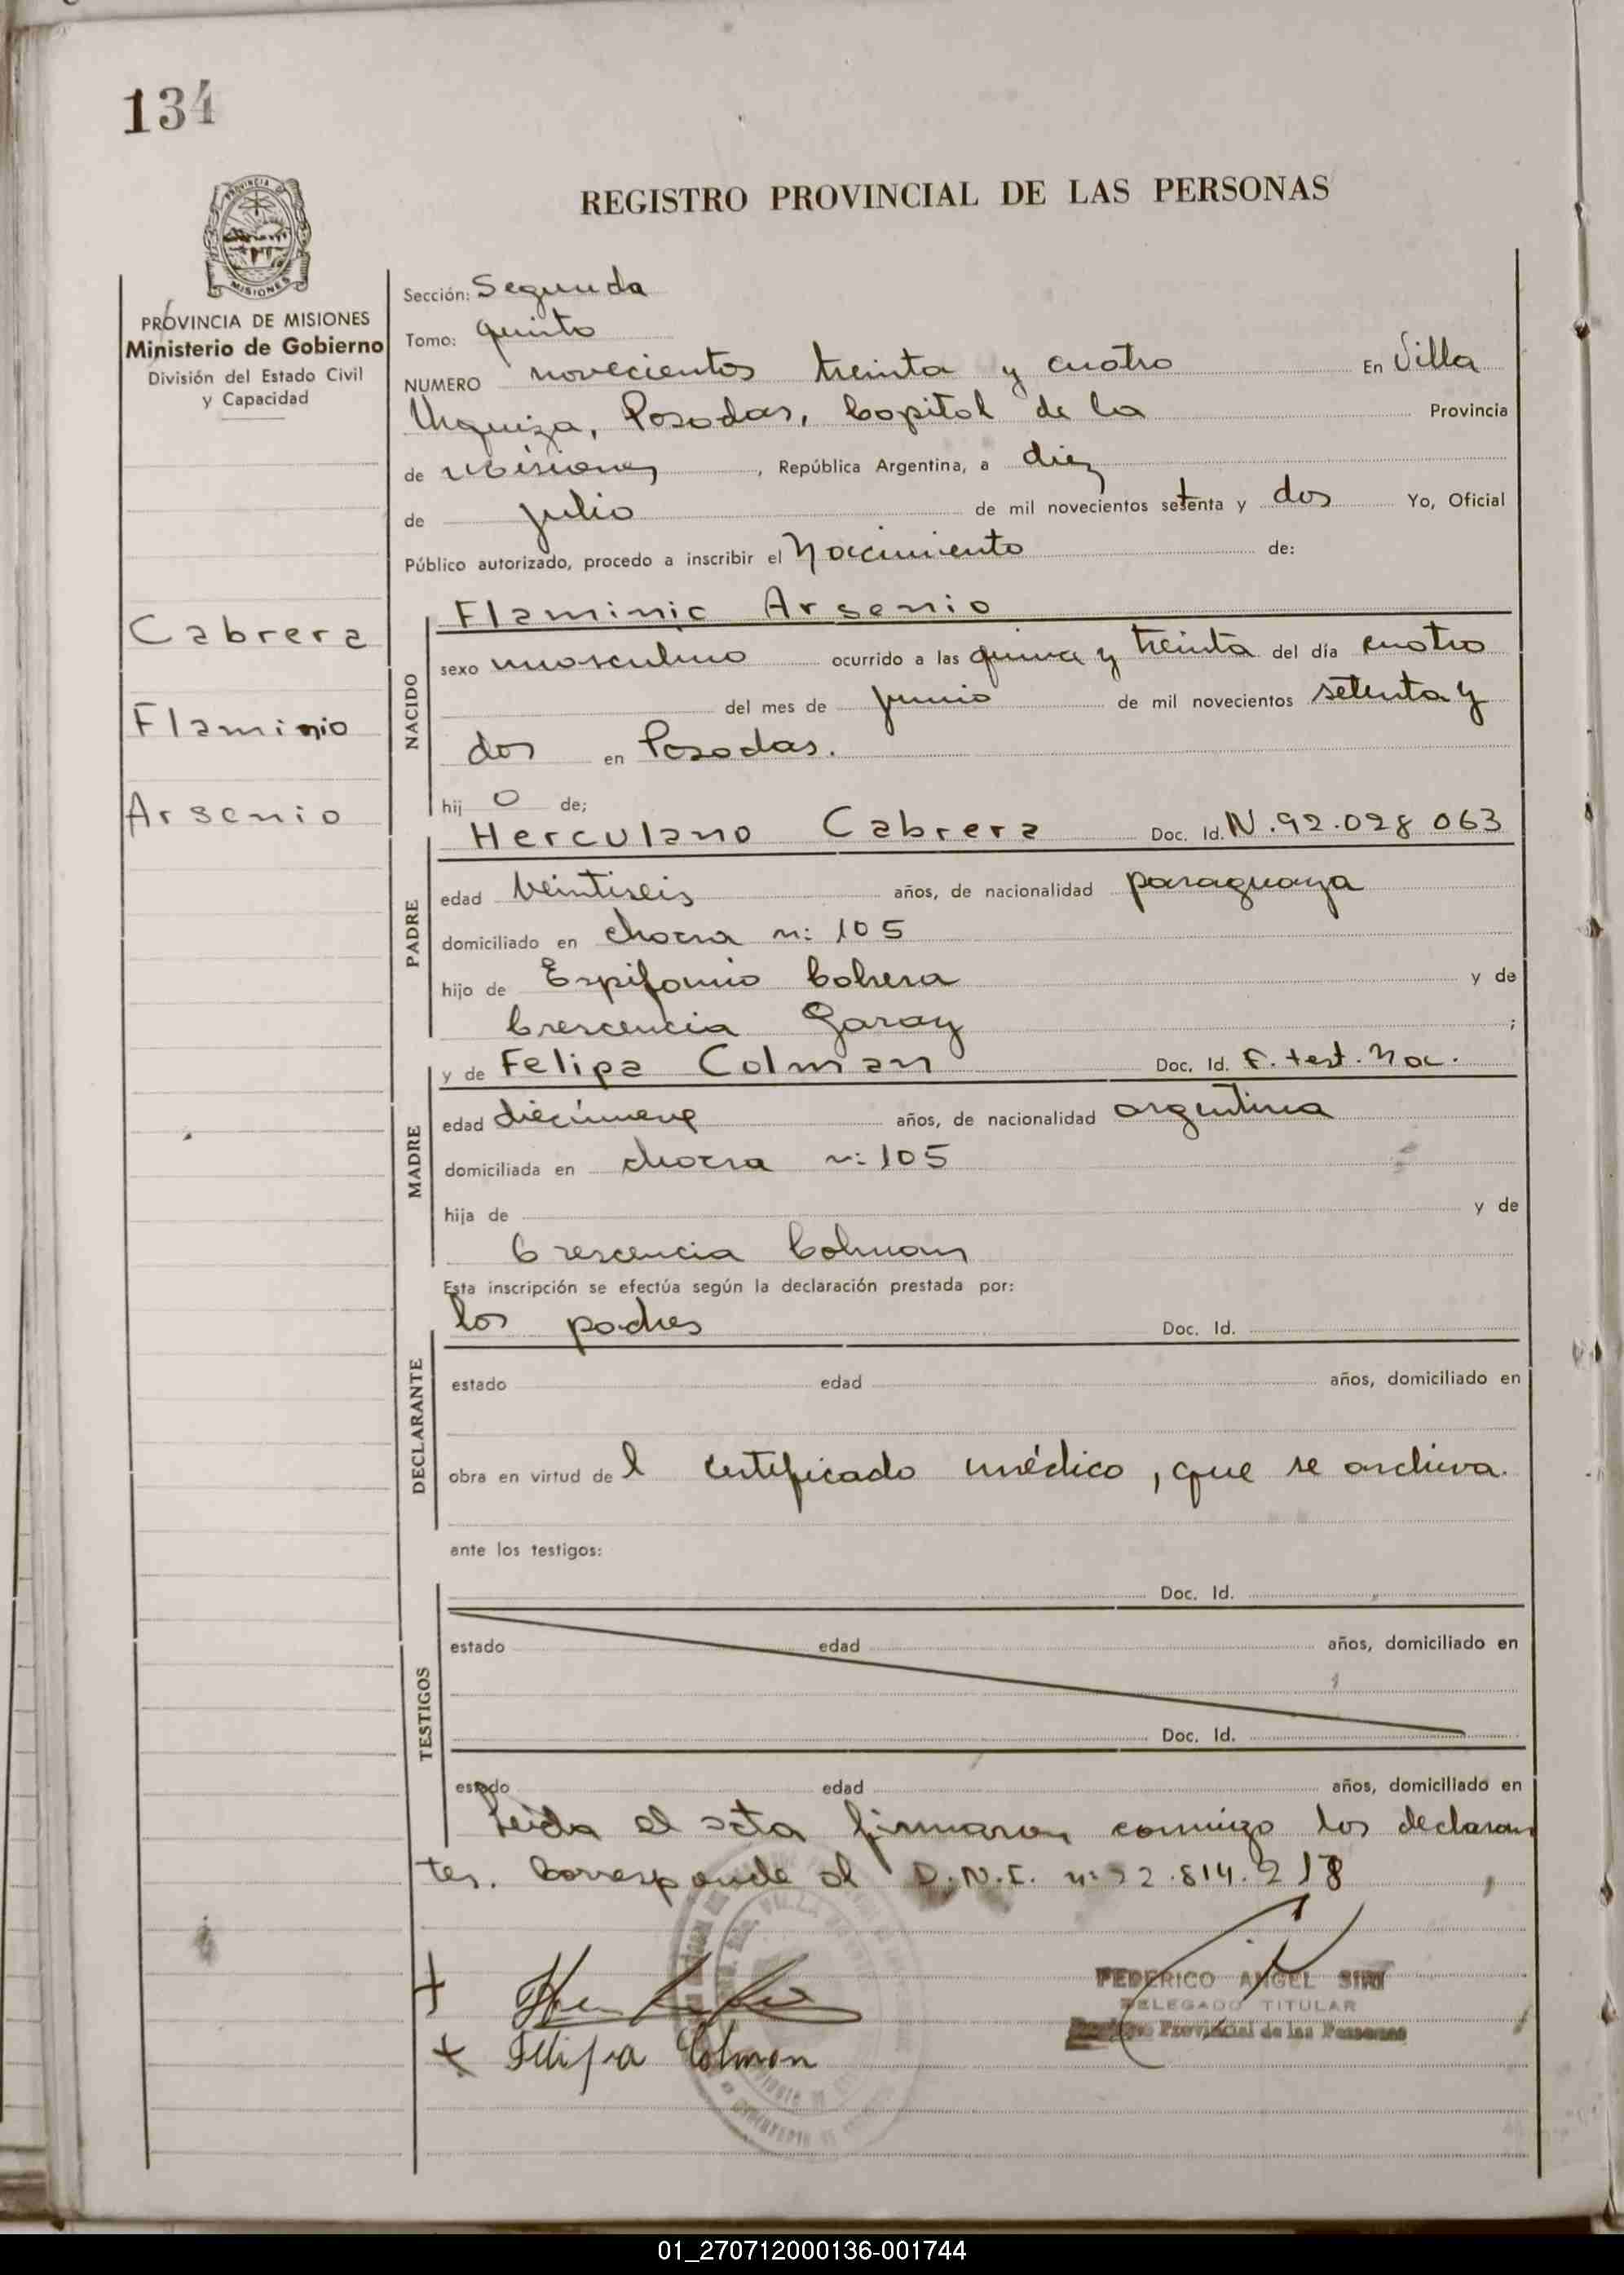 134
REGISTRO PROVINCIAL DE LAS PERSONAS
PROVINCIA DE MISIONES
MISIONES
PROVINCIA DE MISIONES
Ministerio de Gobierno
División del Estado Civil
y Capacidad
Cabrera
Flaminio
Arsenio
Sección: Segunda
Tomo: quinto
NUMERO novecientos treinta y cuatro En Villa
Urquiza, Posadas, Capital de la Provincia
de Misiones, República Argentina, a diez
de julio de mil novecientos setenta y dos Yo, Oficial
Público autorizado, procedo a inscribir el Nacimiento de:
NACIDO
Flaminio Arsenio
sexo masculino ocurrido a las quince y treinta del día cuatro
del mes de junio de mil novecientos setenta y
dos en Posadas.
hij o de;
PADRE
Herculano Cabrera Doc. Id. N. 92.028 063
edad veintiseis años, de nacionalidad paraguaya
domiciliado en chacra n: 105
hijo de Espifanio Cabrera y de
Crescencia Garay ;
MADRE
y de Felipa Colman Doc. Id. F. test. Nac.
edad diecinueve años, de nacionalidad argentina
domiciliada en chacra n: 105
hija de y de
Crescencia Colman
Esta inscripción se efectúa según la declaración prestada por:
DECLARANTE
los padres Doc. Id.
estado edad años, domiciliado en
obra en virtud de l certificado médico, que se archiva.
ante los testigos:
TESTIGOS
Doc. Id.
estado edad años, domiciliado en
Doc. Id.
estado edad años, domiciliado en
Leida el acta firmaron conmigo los declaran
tes. Corresponde al D.N.I. n: 22.814.218
FEDERICO ANGEL SIRI
DELEGADO TITULAR
Provincial de las Personas
Felipa Colman
01_270712000136-001744